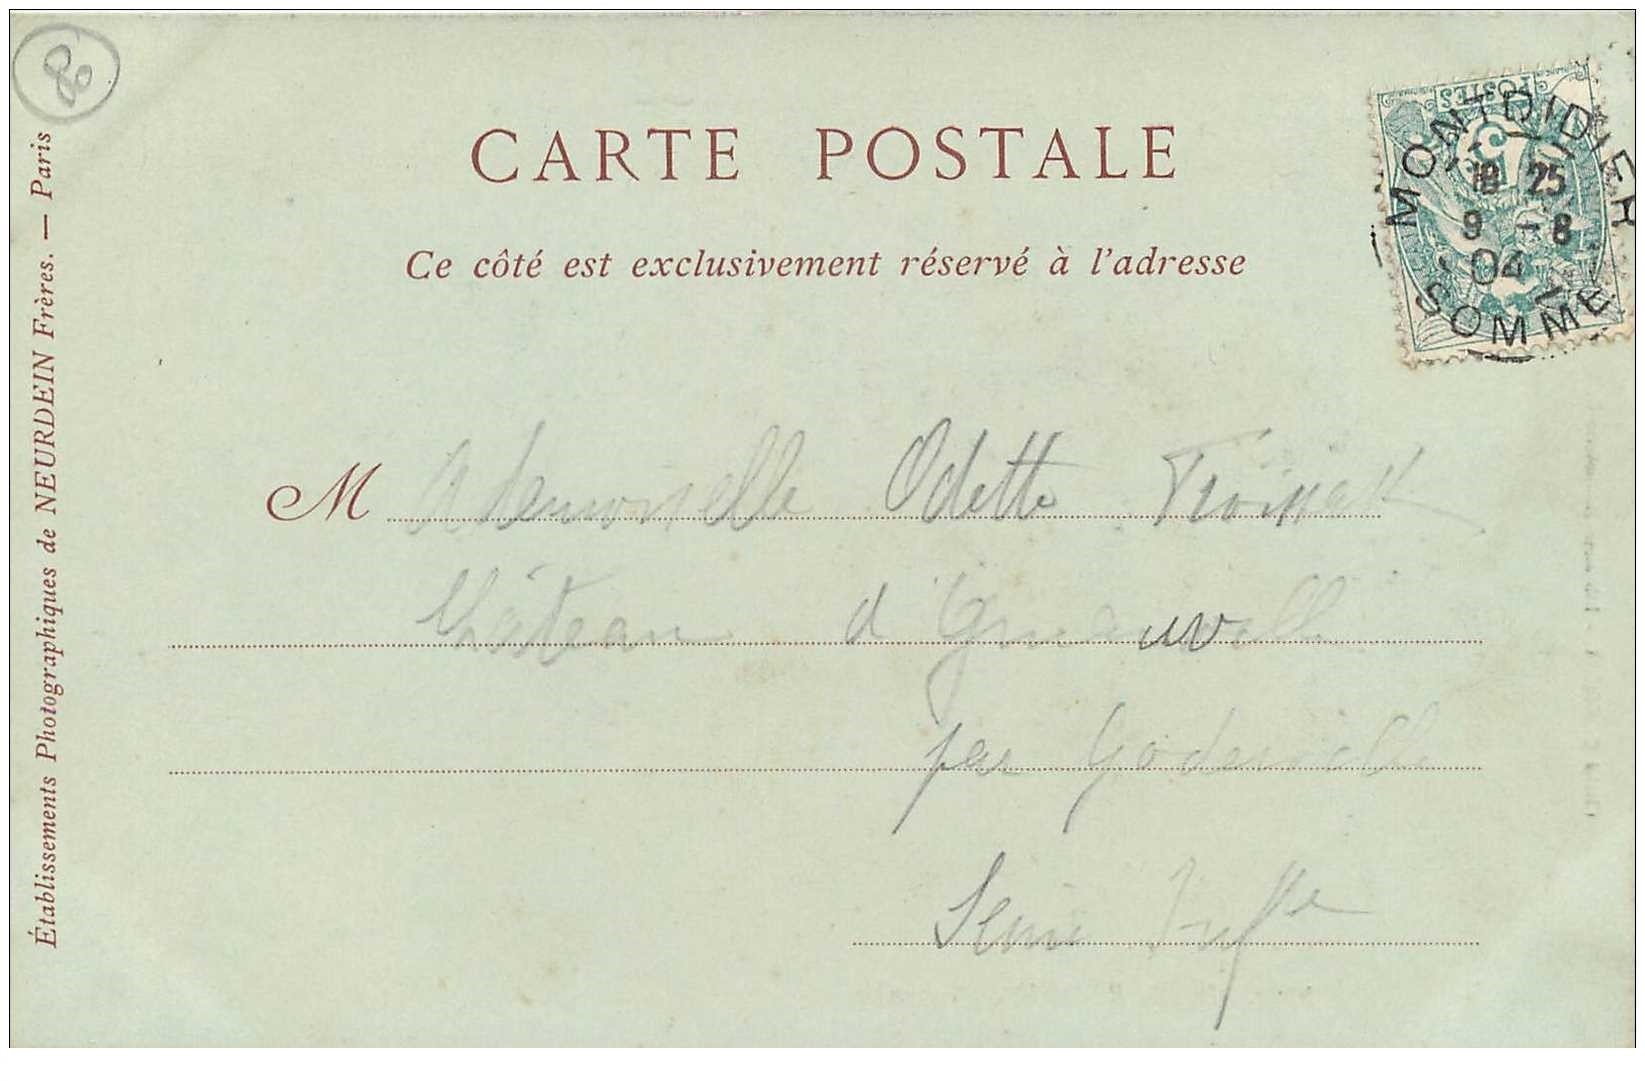 80
CARTE POSTALE
Ce côté est exclusivement réservé à l'adresse
Établissements Photographiques de NEURDEIN Frères. — Paris
POSTES
MONTDIDIER
18 25
9 - 8
04
SOMME
M ademoiselle Odette
Château d'
par Goderville
Seine Infre